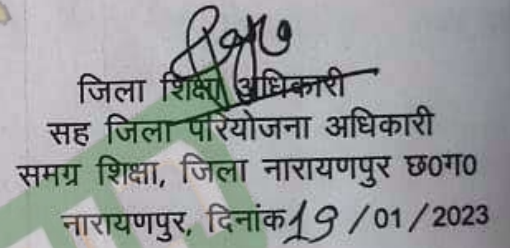 जिला शिक्षा अधिकारी
सह जिला परियोजना अधिकारी
समग्र शिक्षा, जिला नारायणपुर छ0ग0
नारायणपुर, दिनांक 19 / 01 / 2023